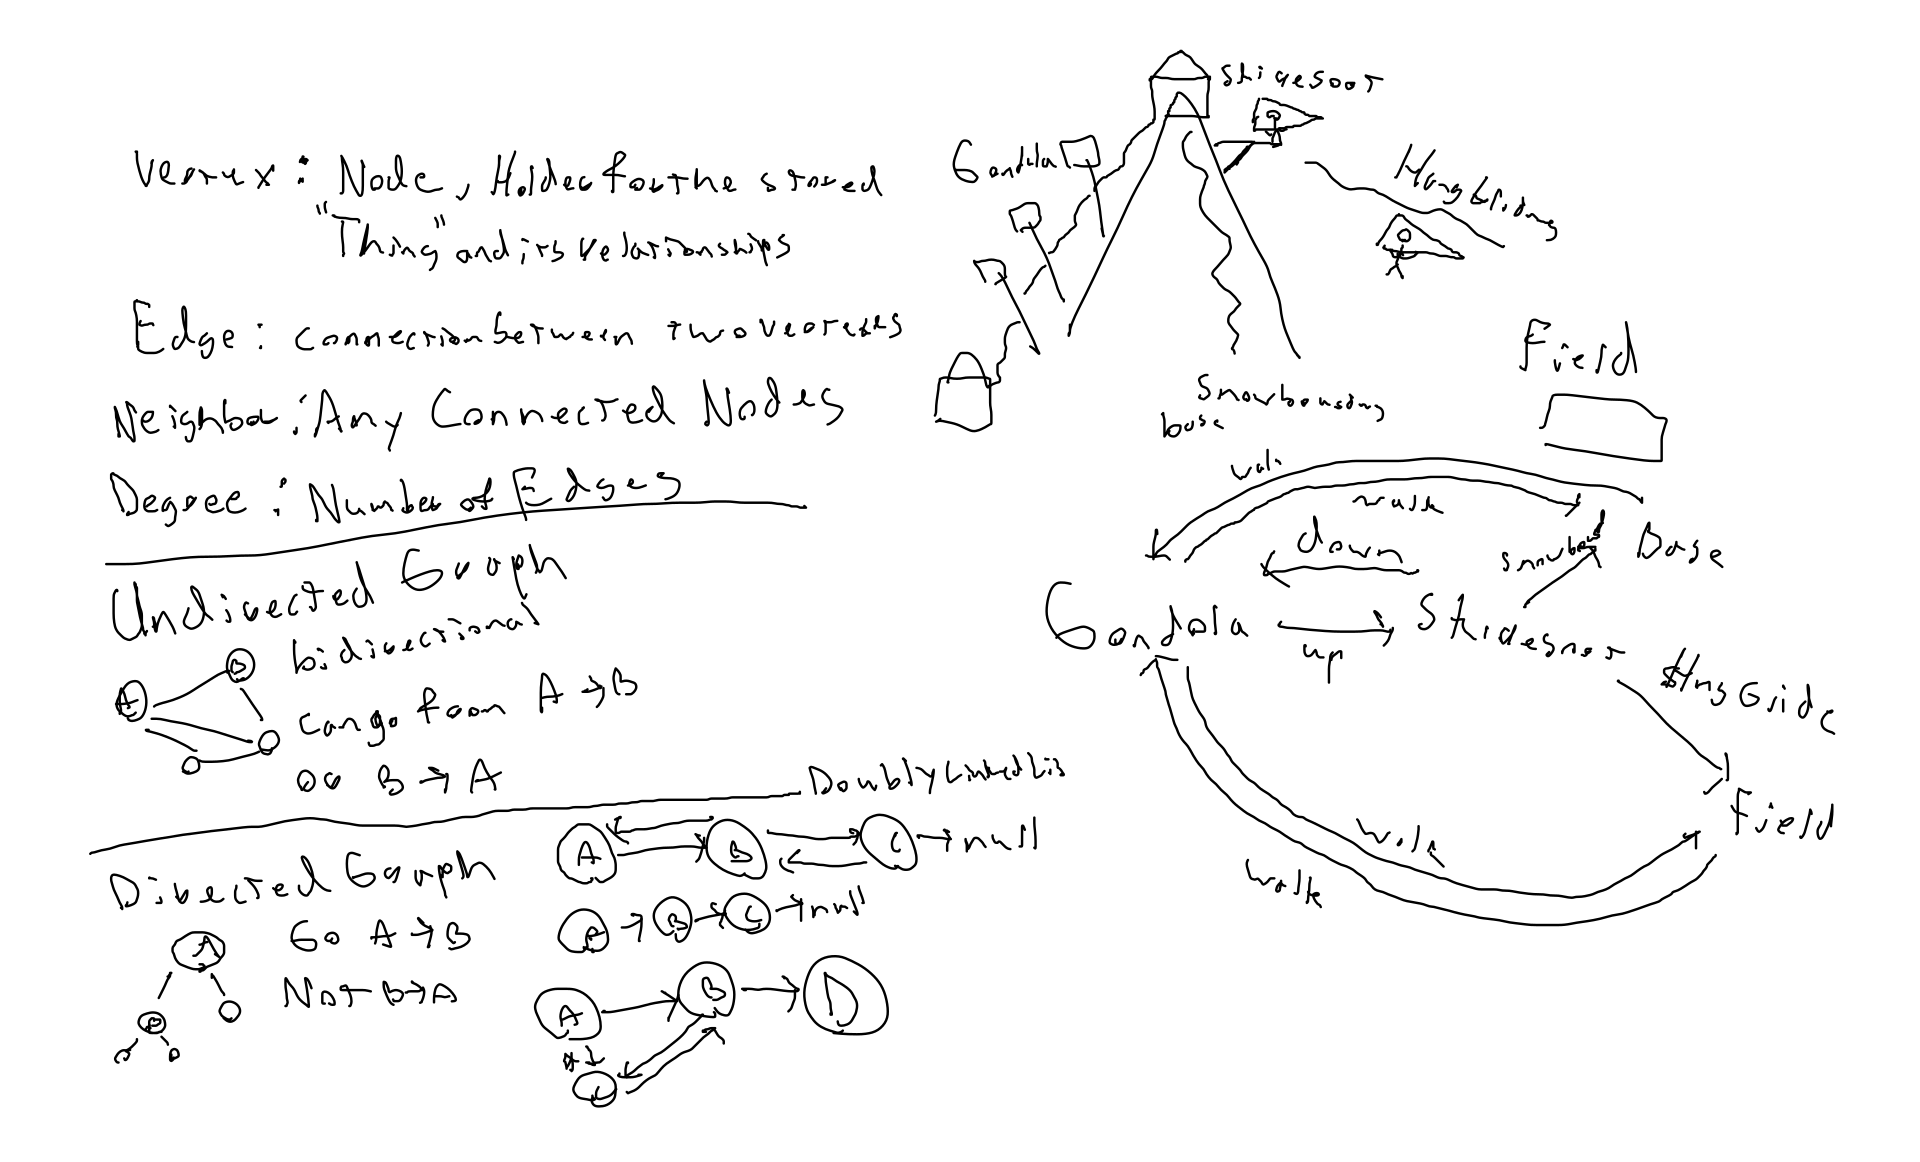 Vertex: Node, Holder for the stored
"Thing" and its relationships
Edge: connection between two vertexes
Neighbor: Any Connected Nodes
Degree: Number of Edges
Undirected Graph
bidirectional
A
B
can go from A → B
or B → A
Directed Graph
Go A → B
Not B → A
A
B
Doubly Linked Lis
A
B
C → null
A → B → C → null
A
B
D
C
Gondola
Hang Gliding
Snowboarding
base
Field
walk
walk
down
snowboard
Base
Gondola
up
Hng Glide
Field
walk
walk